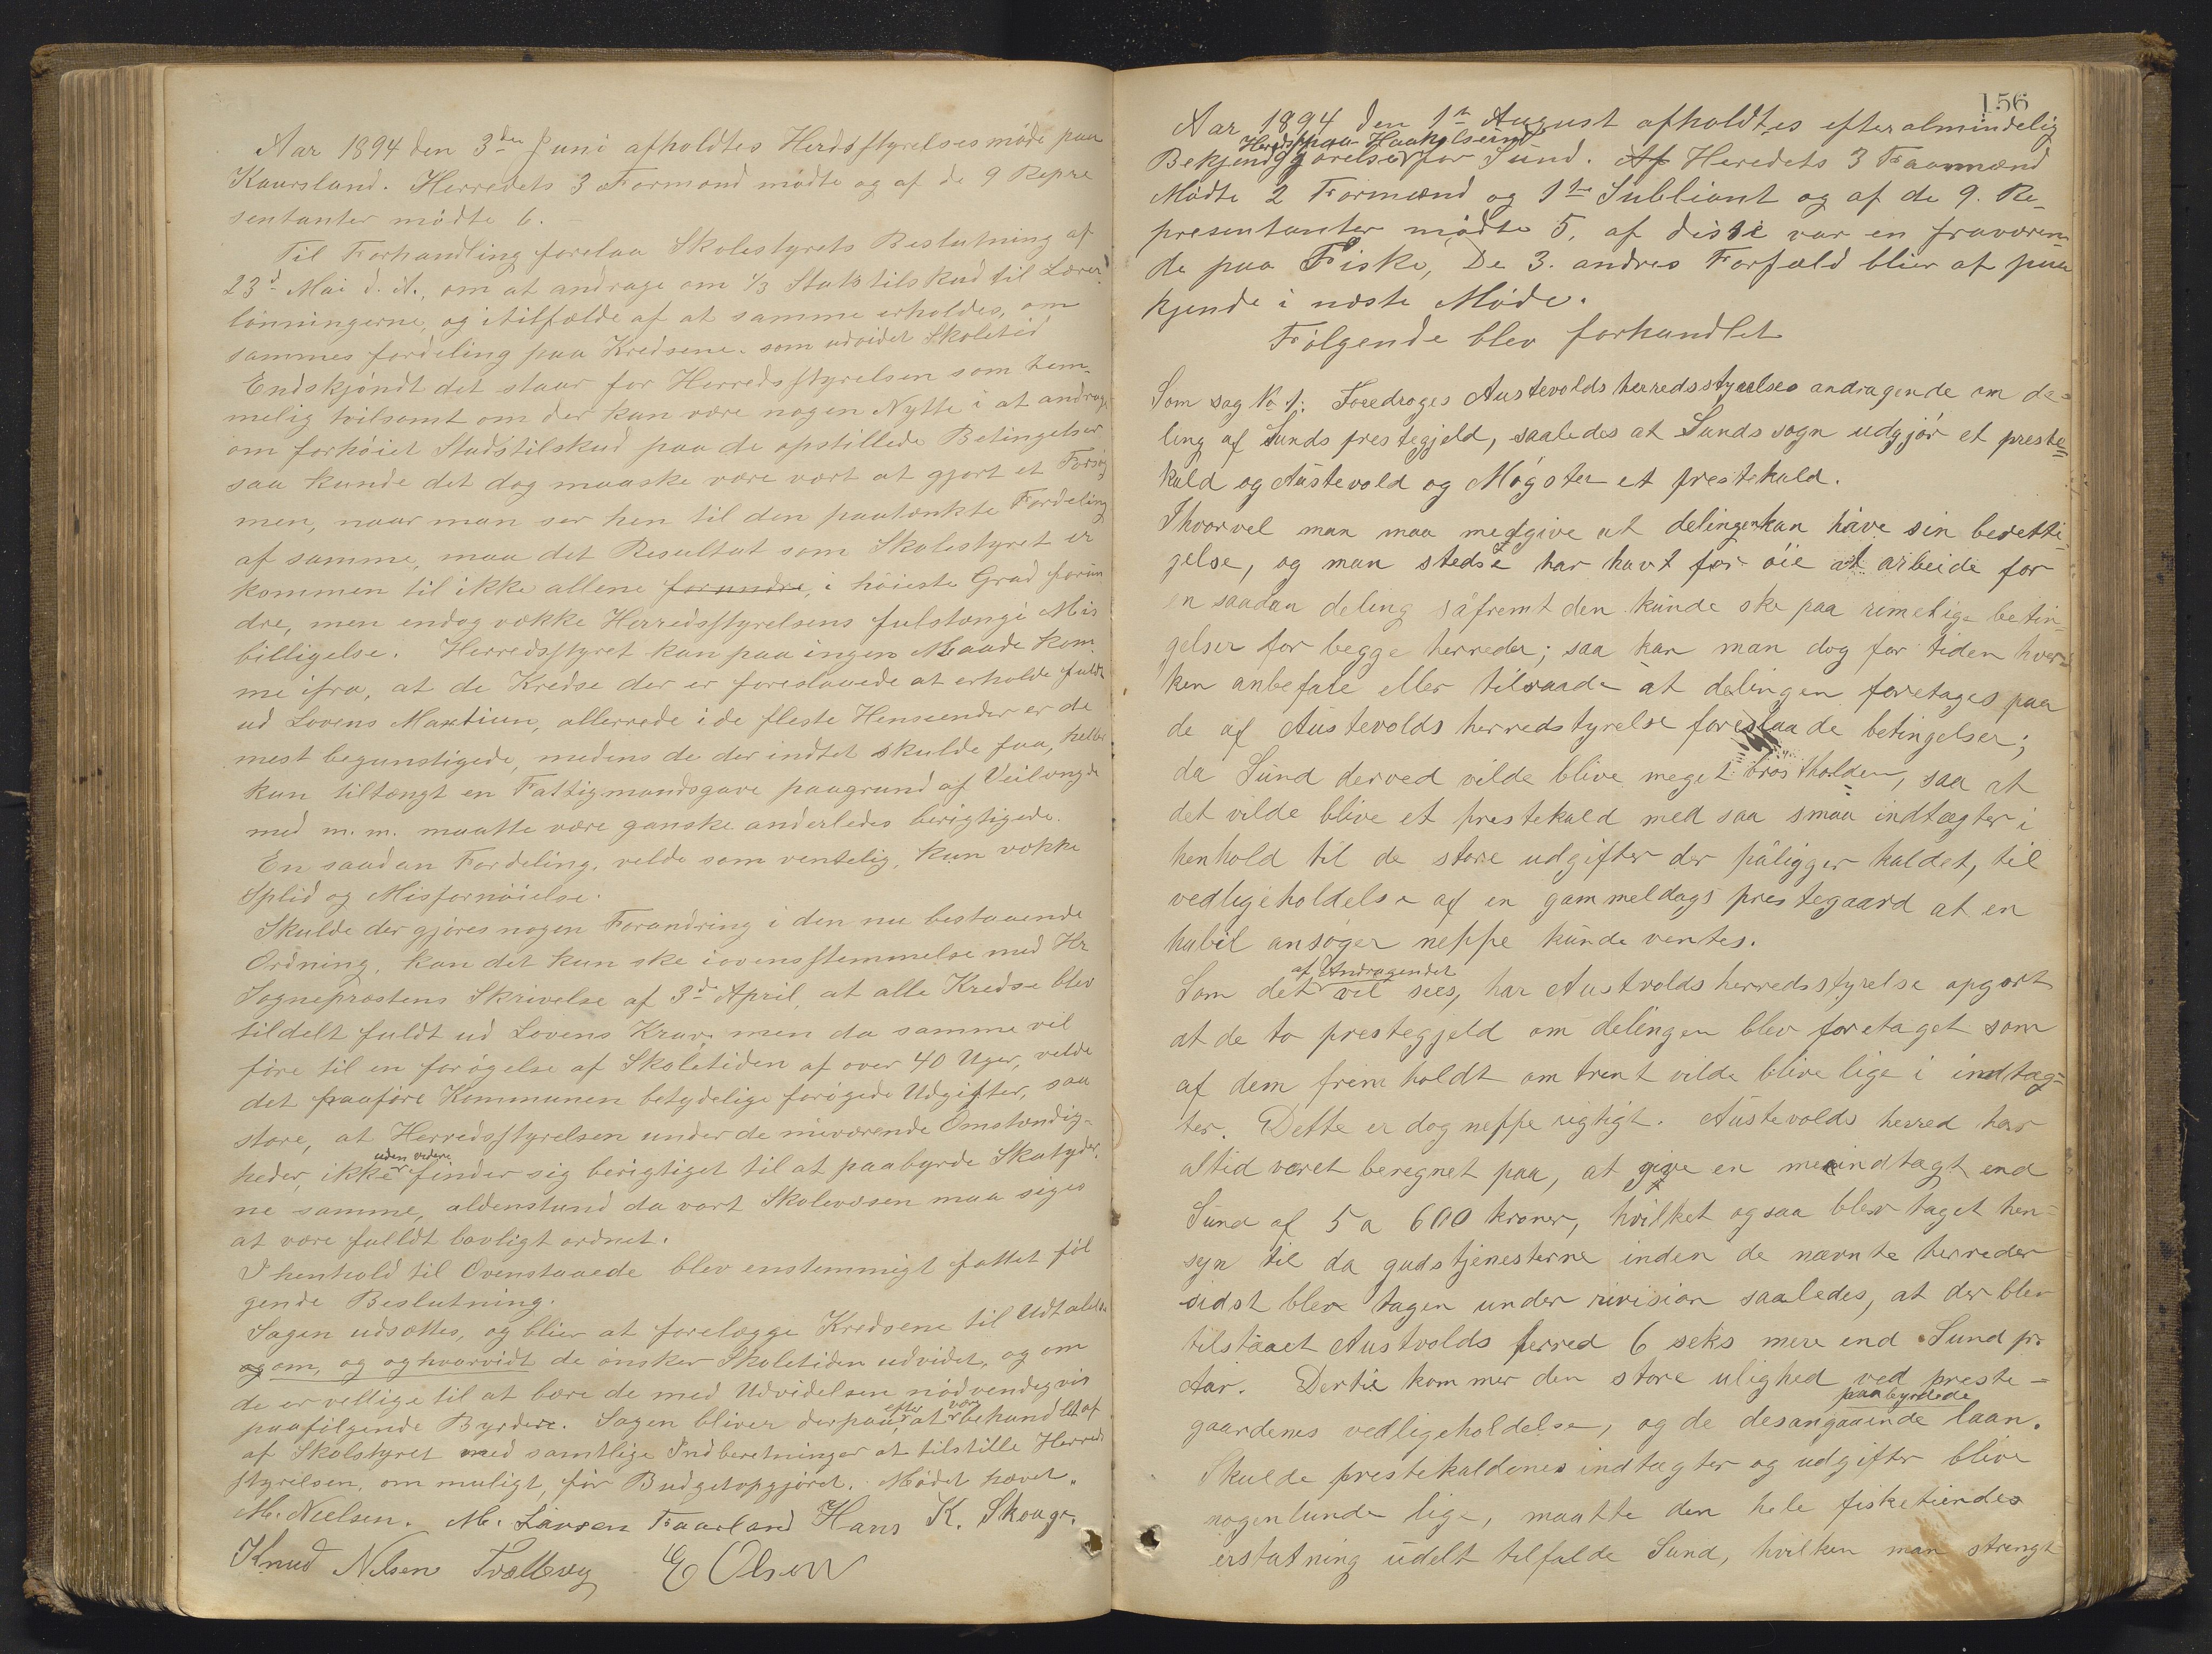 Aar 1894 den 3den Juni afholdtes Herdsstyrelsesmöde paa
Kaursland. Herredets 3 Formænd mödte og af de 9 Repre
sentanter mödte 6. –
Til Forhandling forelaa Skolestyrets Beslutning af
23d Mai d. A., om at andrage om 1/3 Statstilskud til Lærer-
lönningerne, og itilfælde af at samme erholdes, om
sammes fordeling paa Kredsene. som udvidet Skoletid
Endskjöndt det staar for Herredsstyrelsen som tem-
melig tvilsomt om der kan være nogen Nytte i at andrage
om forhöiet Stadstilskud paa de opstillede Betingelser
saa kunde det dog maaske være vært at gjort et Forsög
men, naar man ser hen til den paatænkte Fordeling
af samme, maa det Resultat som Skolestyret er
kommen til ikke allene forundre, i höieste Grad forun
dre, men endog vække Herredsstyrelsens fulstænge Mis
billigelse. Herredsstyret kan paa ingen Maade kom
me ifra, at de Kredse der er foreslaaede at erholde fuldt
ud Lovens Maxtium, allerrede i de fleste Henseender er de
mest begunstigede, medens de der indtet skulde faa, heller
kun tiltængt en Fattigmandsgave paagrund af Veilængde
med m. m. maatte være ganske anderledes berigtigede.
En saadan Fordeling, vilde som ventelig, kun vække
Splid og Misfornöielse.
Skulde der gjöres nogen Forandring i den nu bestaaende
Ordning, kan det kun ske i ovensstemmelse med Hr
Sogneprestens Skrivelse af 3de April, at alle Kredse blev
tildelt fuldt ud Lovens Krav, men da samme vil
före til en forögelse af Skoletiden af over 40 Uger, vilde
det paaföre Kommunen betydelige forögede Udgifter, saa
store, at Herredsstyrelsen under de nuværende Omstændig-
heder, ikke uden videre finder sig berigtiget til at paabyrde Skatyder.
ne samme, aldenstund da vort Skolevæsen maa siges
at være fulldt lovligt ordnet.
I henhold til Ovenstaaede blev enstemmigt fattet föl
gende Beslutning.
Sagen udsættes, og blier at forelægge Kredsene til Udtalelse
og om, og og hvorvidt de önsker Skoletiden udvidet, og om
de er villige til at bære de med Udvidelsen nödvendigvis
paafölgende Byrder. Sagen bliver derpaa, efter at være behandlet af
af Skolstyret med samtlige Indberetninger at tilstille Herreds
styrelsen, om muligt, för Budgetopgjöret. Mödet hævet.
M. Nielsen. M. Larsen Faarland Hans K. Skoge.
Knud Nilsen Trællevig E Olsen
156
Aar 1894 den 1te August afholdtes efter almindelig
Bekjendgjörelse Heredsmpaa Haakolsund for Sund. Af Heredets 3 Foormænd
Mödte 2 Formænd og 1te Subliant og af de 9. Re-
presentanter mödte 5, af disse var en fraværen-
de paa Fiske, De 3. andres Forfæld blier at paa
kjende i næste Möde.
Fölgende blev forhandlet
Som sag No 1: Foredroges Austevolds herredsstyrelses andragende om de-
ling af Sunds prestegjeld, saaledes at Sunds sogn udgjör et preste-
kald og Austevold og Mögster et prestekald.
Ihvorvel man maa medgive at delingen kan have sin beretti-
gelse, og man stedse har havt for öie at arbeide for
en saadan deling såfremt den kunde ske paa rimelige betin-
gelser for begge herreder; saa kan man dog for tiden hver-
ken anbefale eller tilraade at delingen foretages paa
de af Austevolds herredstyrelse foreslaade betingelser;
da Sund derved vilde blive meget brösthalden, saa at
det vilde blive et prestekald med saa smaa indtægter i
henhold til de store udgifter der påligger kaldet, til
vedligeholdelse af en gammeldags prestegaard at en
habil ansöger neppe kunde ventes.
Som det af Andragendet vil sees, har Austvolds herredsstyrelse opgjort
at de to prestegjeld om delingen blev foretaget som
af dem frem holdt om trent vilde blive lige i indtæg-
ter. Dette er dog neppe rigtigt. Austevolds herred har
altid været beregnet paa, at give en merindtægt end
Sund af 5 a 600 kroner, hvilket ogsaa blev taget hen-
syn til da gudstjenesterne inden de nævnte herreder
sidst blev tagen under rivision saaledes, at der blev
tilstaaet Austvolds herred 6 seks mere end Sund pr.
Aar. Dertil kommer den store ulighed ved preste-
gaardenes vedligeholdelse, og de desangaaende paabyrdede laan.
Skulde prestekaldenes indtægter og udgifter blive
nogenlunde lige, maatte den hele fisketiendes
erstatning udelt tilfalde Sund, hvilken man strengt